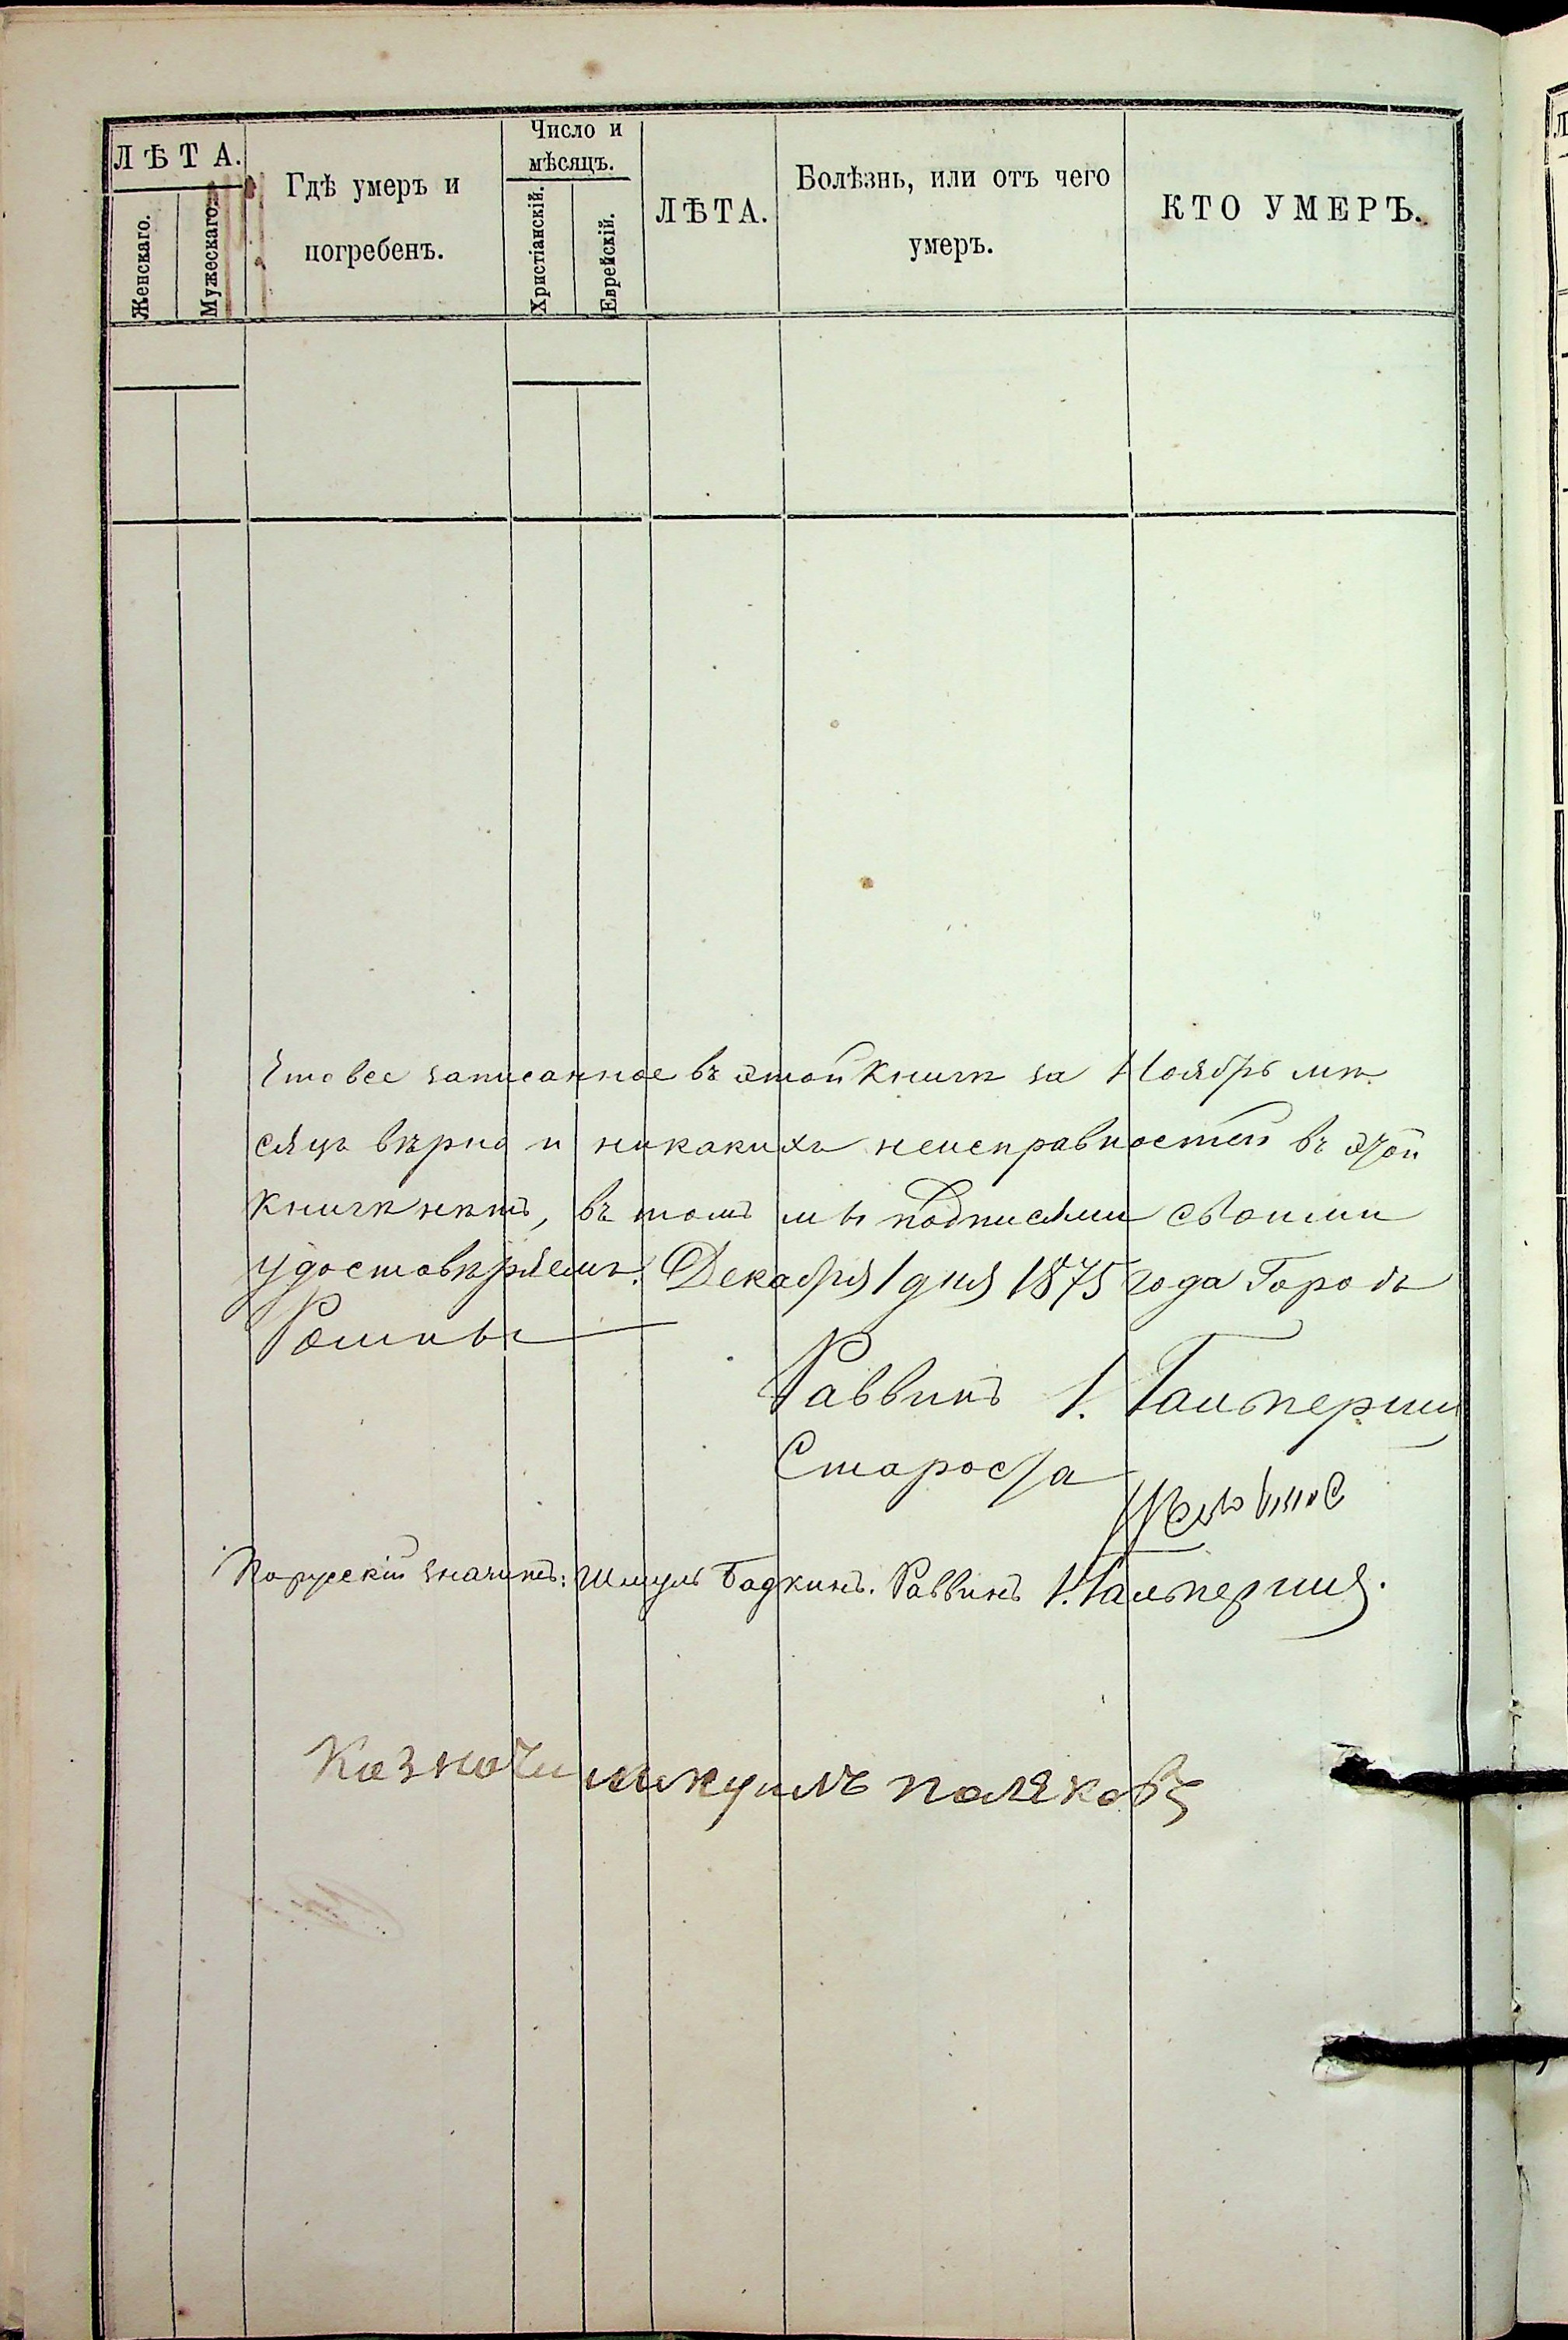 ЛѢТА.
Женскаго.
Мужескаго.
Гдѣ умеръ и
погребенъ.
Число и
мѣсяцъ.
Христіанскій.
Еврейскій.
ЛѢТА.
Болѣзнь, или отъ чего
умеръ.
КТО УМЕРЪ.
Что все записанное въ этой книгѣ за Ноябрь мѣ
сяцъ вѣрно и никакихъ неисправностей въ этой
книгѣ нѣтъ, въ томъ мы подписями своими
удостовѣряемъ. Декабря 1 дня 1875 года Городъ
Ромны
Раввинъ І. Гальперинъ
Староста
По русски значитъ: Шмуль Бадкинъ. Раввинъ І. Гальперинъ.
Казначи поляковъ